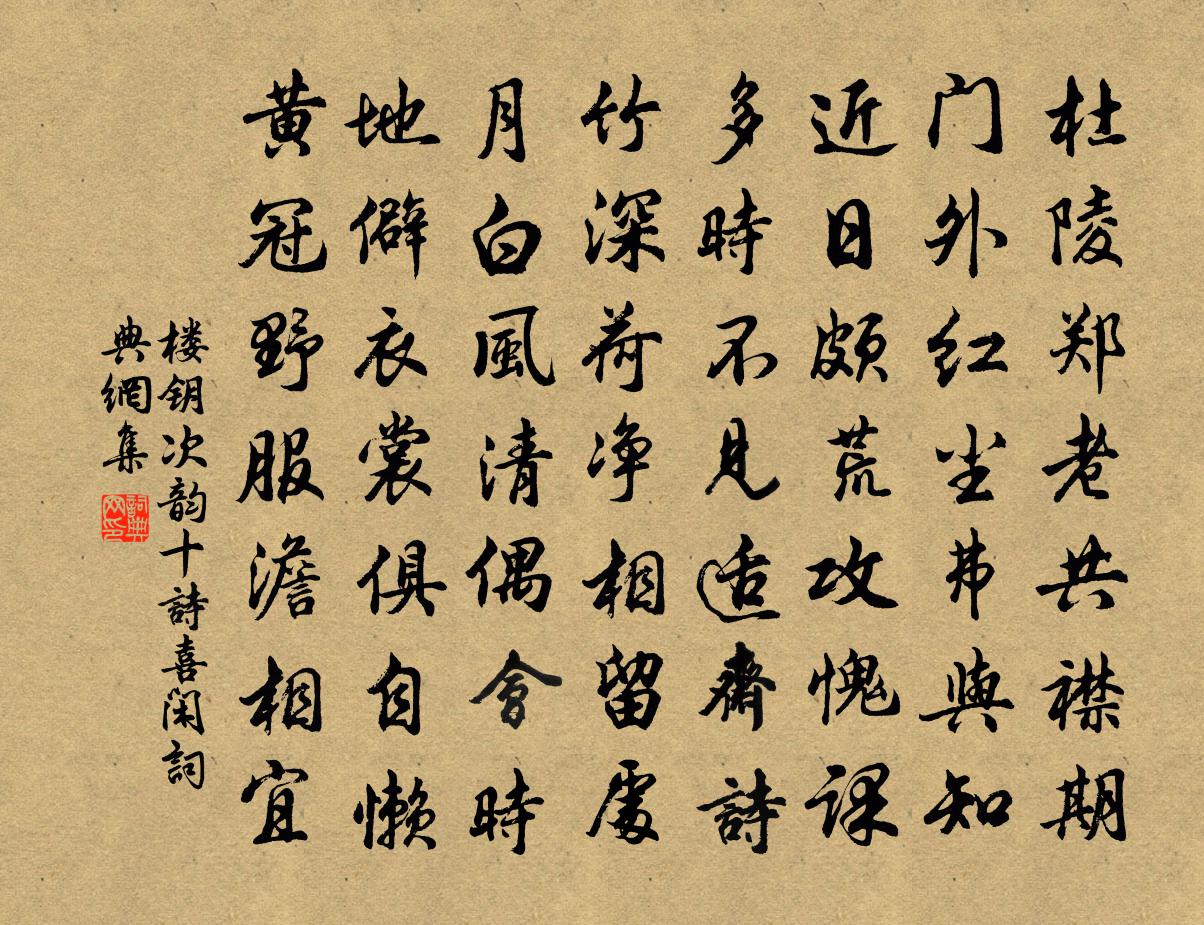 杜陵郑老共襟期
门外红尘弗與知
近日頗荒攻愧課
多時不見适齋詩
竹深荷净相留處
月白風清偶會時
地僻衣裳俱自懒
黄冠野服澹相宜
楼钥次韵十詩喜闲詞
典網集
詞典
网印